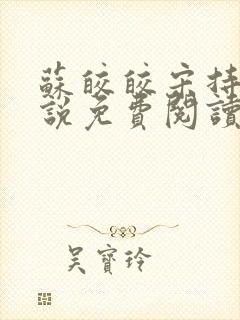 蘇皎皎宋持
說免費閱讀
吳寶玲